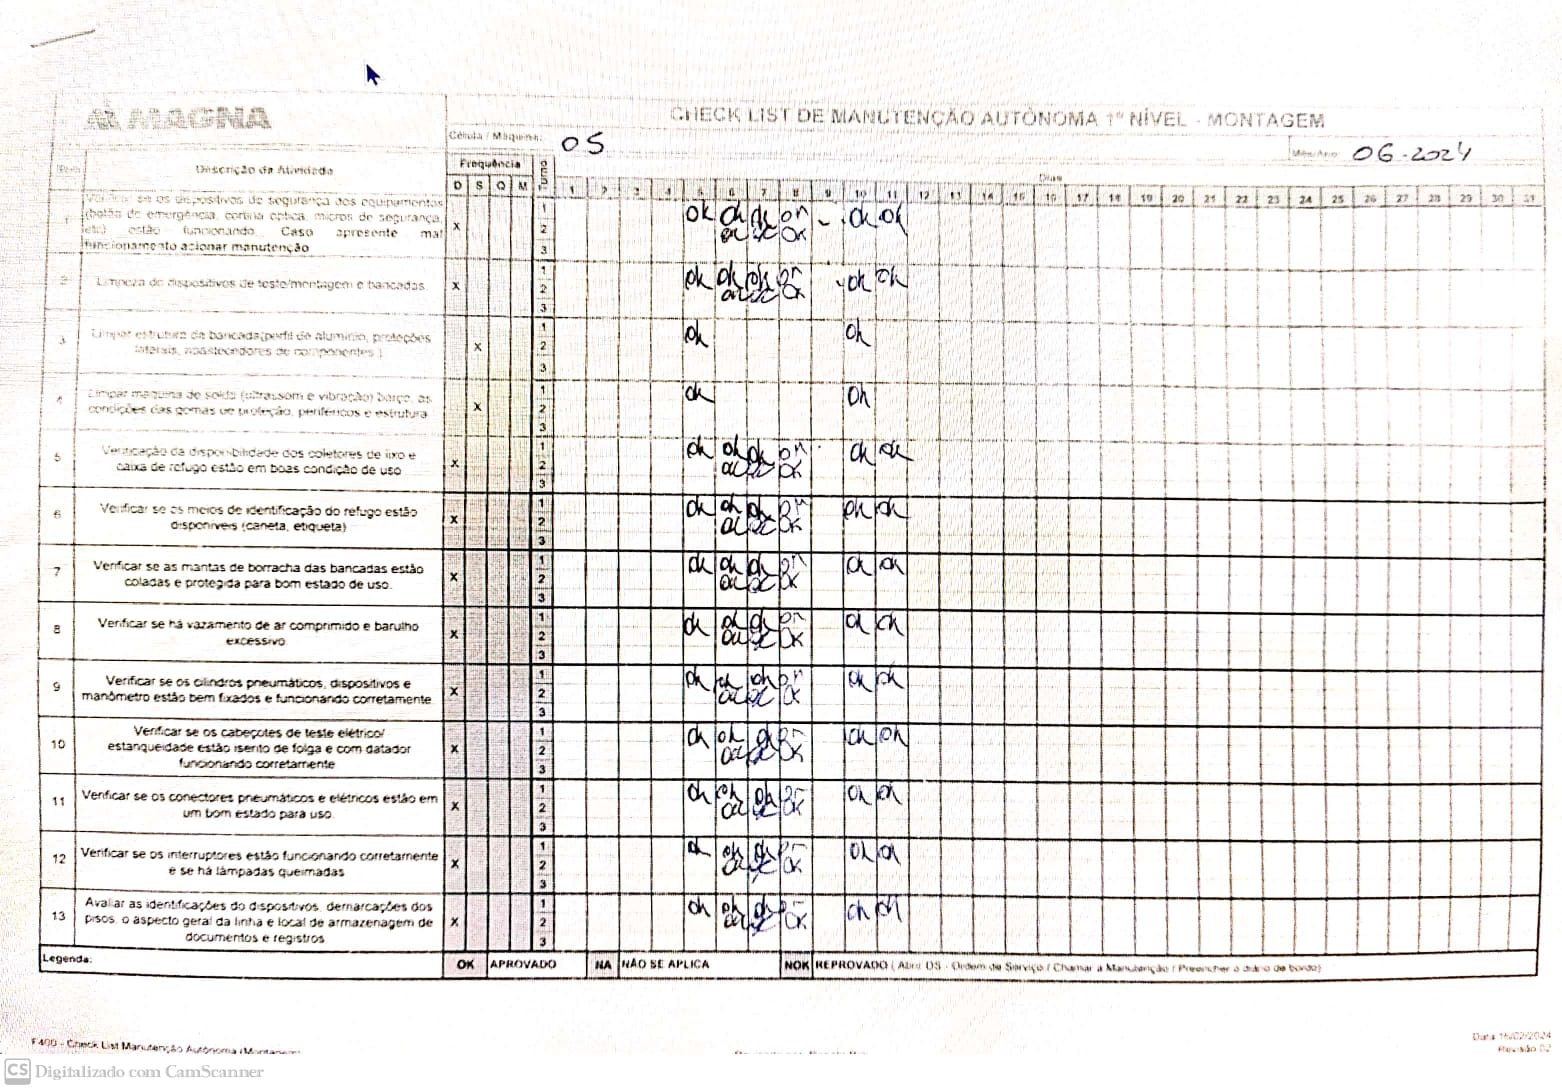 MAGNA
CHECK LIST DE MANUTENÇÃO AUTÔNOMA 1º NÍVEL - MONTAGEM
Célula / Máquina: 05
Mês/Ano: 06-2024
Descrição da Atividade
Frequência
Turno
Dias
D S Q M
1 2 3 4 5 6 7 8 9 10 11 12 13 14 15 16 17 18 19 20 21 22 23 24 25 26 27 28 29 30 31
1
Verificar se os dispositivos de segurança dos equipamentos
(botão de emergência, cortina optica, micros de segurança,
etc) estão funcionando. Caso apresente mal
funcionamento acionar manutenção
X
1 ok ok ok on - ok ok
2 OK
3
2 Limpeza do dispositivos de teste/montagem e bancadas. X
1 ok ok ok on ok ok
2 OK
3
3 Limpar estrutura da bancada(perfil de aluminio, proteções
laterais, abastecedores de componentes ) X
1 ok ok
2
3
4 Limpar maquina de solda (ultrassom e vibração) berço, as
condições das gomas de proteção, periféricos e estrutura X
1 ok ok
2
3
5 Verificação da disponibilidade dos coletores de lixo e
caixa de refugo estão em boas condição de uso X
1 ok ok ok on ok ok
2 OK
3
6 Verificar se os meios de identificação do refugo estão
disponiveis (caneta, etiqueta) X
1 ok ok ok on ok ok
2 OK
3
7 Verificar se as mantas de borracha das bancadas estão
coladas e protegida para bom estado de uso. X
1 ok ok ok on ok ok
2 OK
3
8 Verificar se há vazamento de ar comprimido e barulho
excessivo X
1 ok ok ok on ok ok
2 OK
3
9 Verificar se os cilindros pneumáticos, dispositivos e
manômetro estão bem fixados e funcionando corretamente X
1 ok ok ok on ok ok
2 OK
3
10 Verificar se os cabeçotes de teste elétrico/
estanqueidade estão isento de folga e com datador
funcionando corretamente X
1 ok ok ok on ok ok
2 OK
3
11 Verificar se os conectores pneumáticos e elétricos estão em
um bom estado para uso. X
1 ok ok ok on ok ok
2 OK
3
12 Verificar se os interruptores estão funcionando corretamente
e se há lâmpadas queimadas X
1 ok ok ok on ok ok
2 OK
3
13 Avaliar as identificações do dispositivos, demarcações dos
pisos, o aspecto geral da linha e local de armazenagem de
documentos e registros X
1 ok ok ok on ok ok
2 OK
3
Legenda: OK APROVADO NA NÃO SE APLICA NOK REPROVADO ( Abrir OS - Ordem de Serviço / Chamar a Manutenção / Preencher o diário de bordo)
F400 - Check List Manutenção Autônoma (Montagem)
Data 16/02/2024
Revisão 02
CS Digitalizado com CamScanner